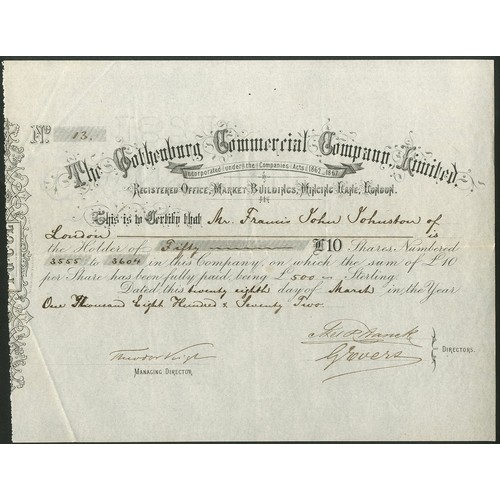 No. 13.
The Gothenburg Commercial Company Limited.
Incorporated under the Companies Acts 1862, 1867
Registered Office, Market Buildings, Mincing Lane, London.
This is to Certify that Mr. Francis John Johnston of
London is
the Holder of Fifty £10 Shares, Numbered
3555 to 3604 in the Company, on which the sum of £10
per Share has been fully paid, being £500 Sterling.
Dated this twenty eighth day of March in the Year
One Thousand Eight Hundred & Seventy Two
Theodor Voigt
Managing Director
Govers
Directors.